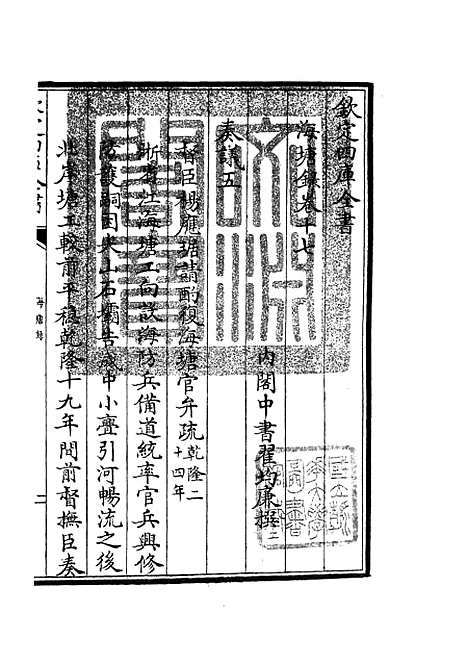 欽定四庫全書
海塘録卷十七
内閣中書翟均廉撰
奏議五
督臣楊應琚請酌復海塘官弁疏乾隆二十四年
浙省江海塘工向設海防兵備道統率官兵興修
防護嗣因尖山石壩告成中小亹引河暢流之後
北岸塘工較前平穏乾隆十九年間前督撫臣奏
海塘録